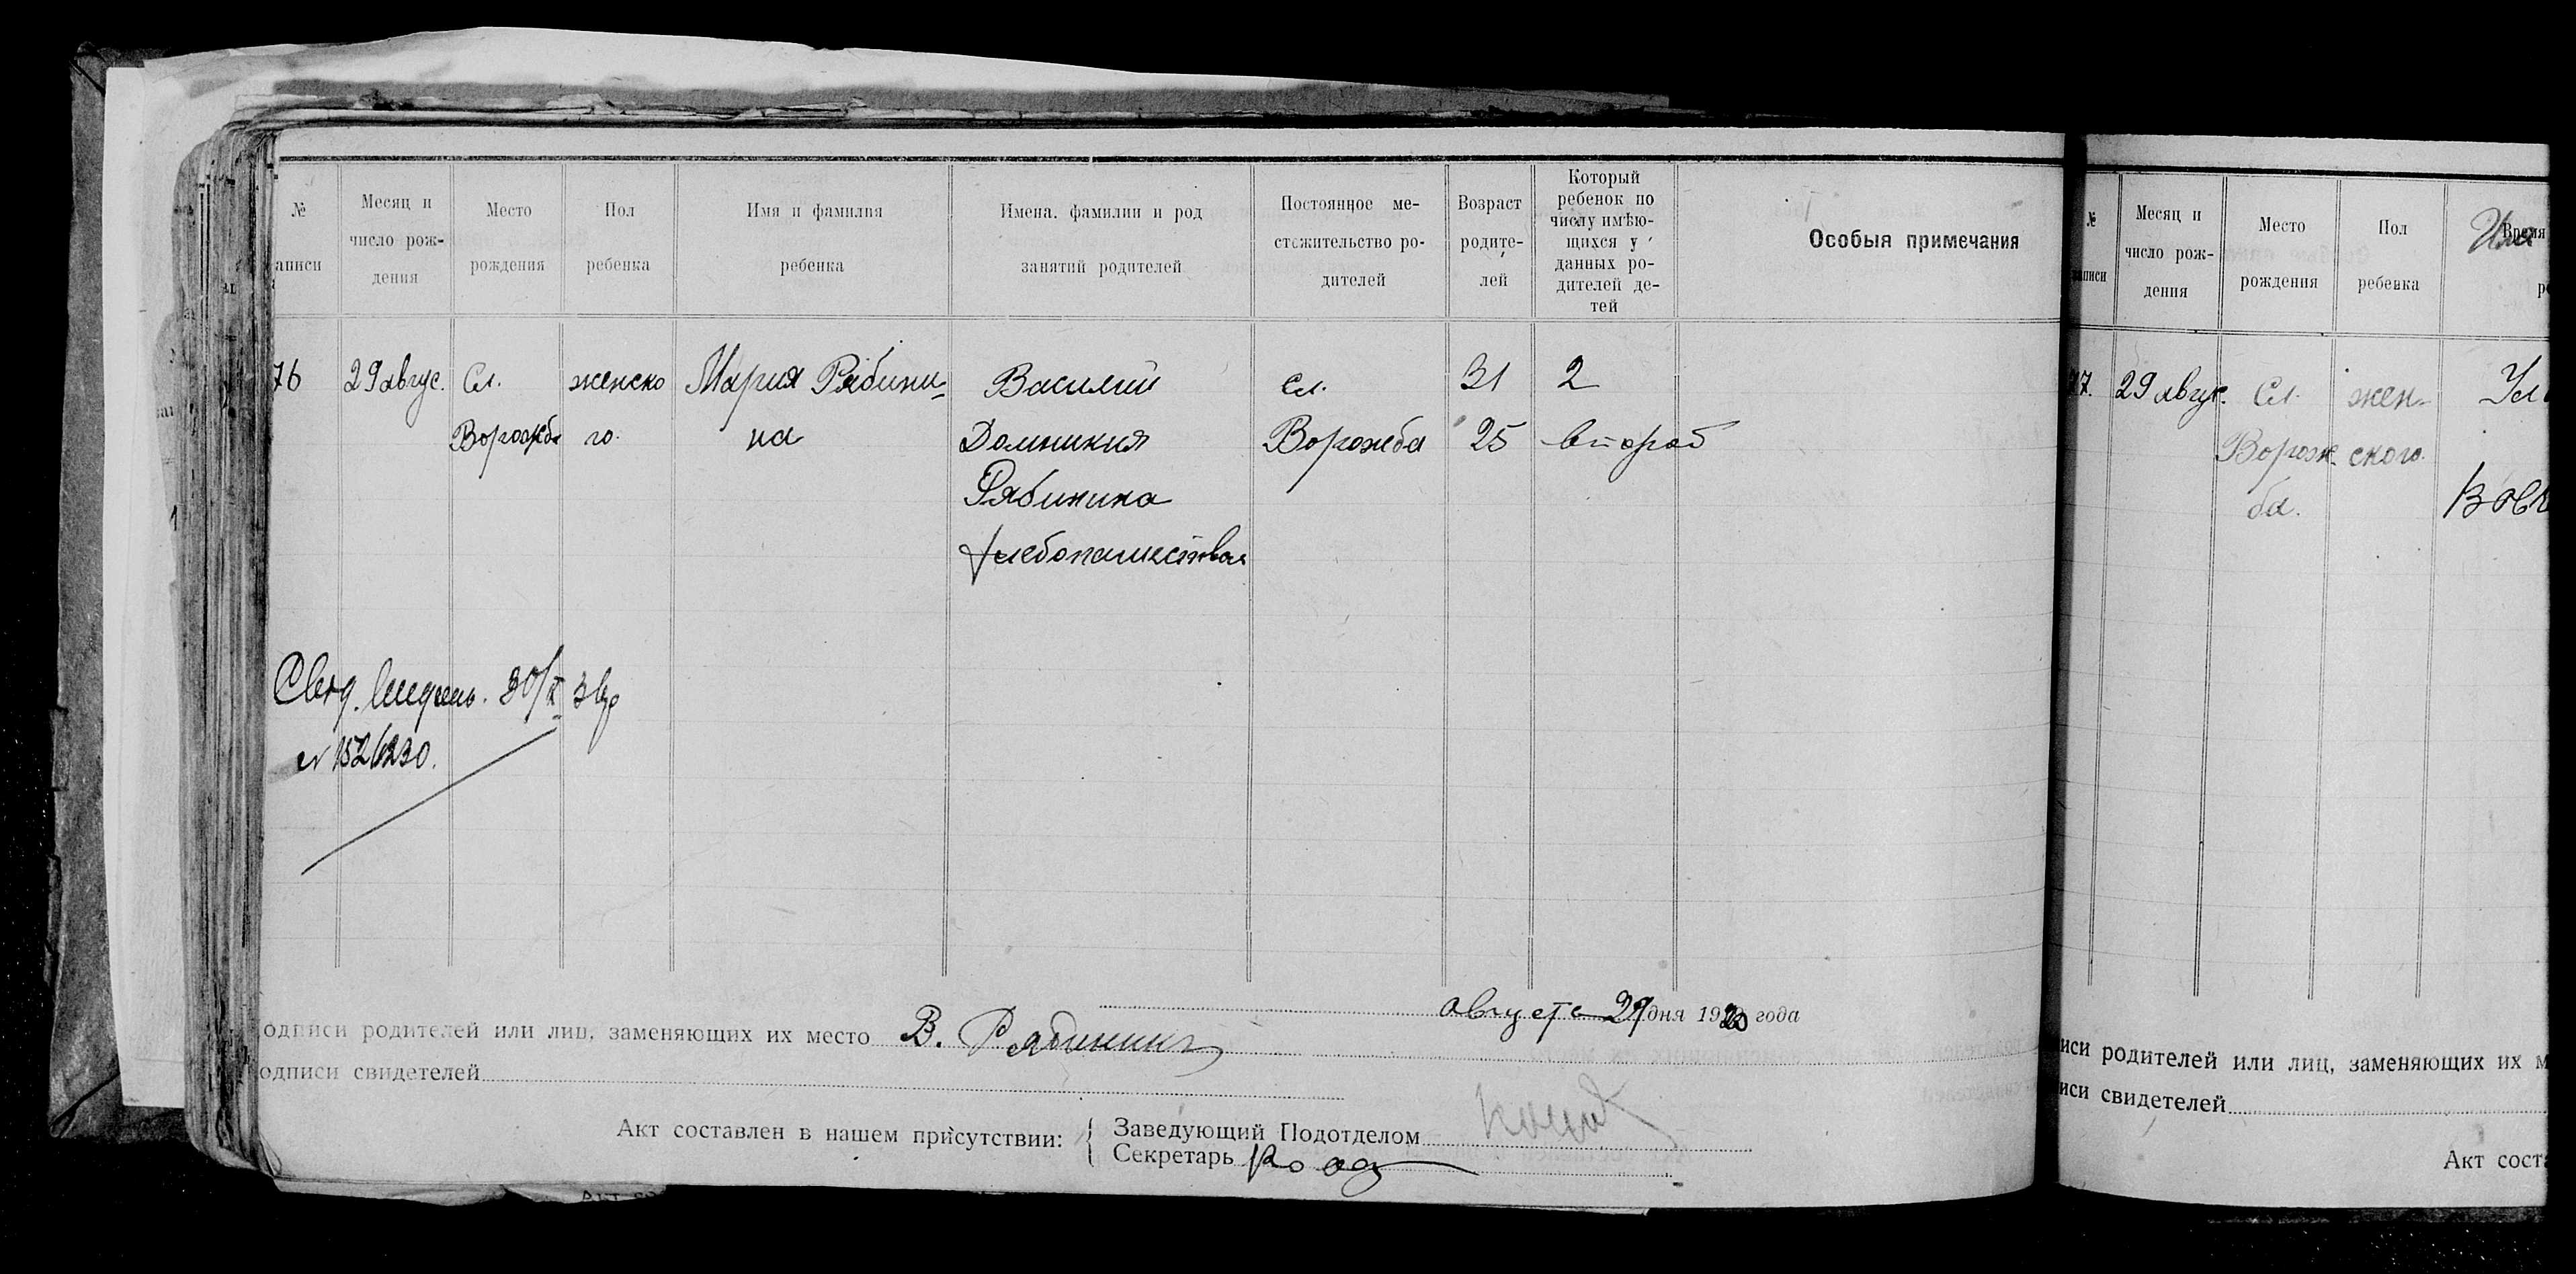 №
аписи
Месяц и
число рож-
дения
Место
рождения
Пол
ребенка
Имя и фамилия
ребенка
Имена, фамилии и род
занятий родителей
Постоянное ме-
стожительство ро-
дителей
Возраст
родите-
лей
Который
ребенок по
числу имѣю-
щихся у
данных ро-
дителей де-
тей
Особыя примечания
76
29 авгус.
Сл.
Ворожба
женско
го.
Мария Рябини-
на
Василий
Домникия
Рябинина
хлебопашества
Сл.
Ворожба
31
25
2
второй
30/X
августа 29 дня 1920 года
одписи родителей или лиц, заменяющих их место В. Рябинин
одписи свидетелей
Акт составлен в нашем присутствии:
Заведующий Подотделом
Секретарь
№
аписи
Месяц и
число рож-
дения
Место
рождения
Пол
ребенка
Время
77.
29 авгус.
Сл.
Ворож-
ба.
жен-
ского.
иси родителей или лиц, заменяющих их м
иси свидетелей
Акт соста